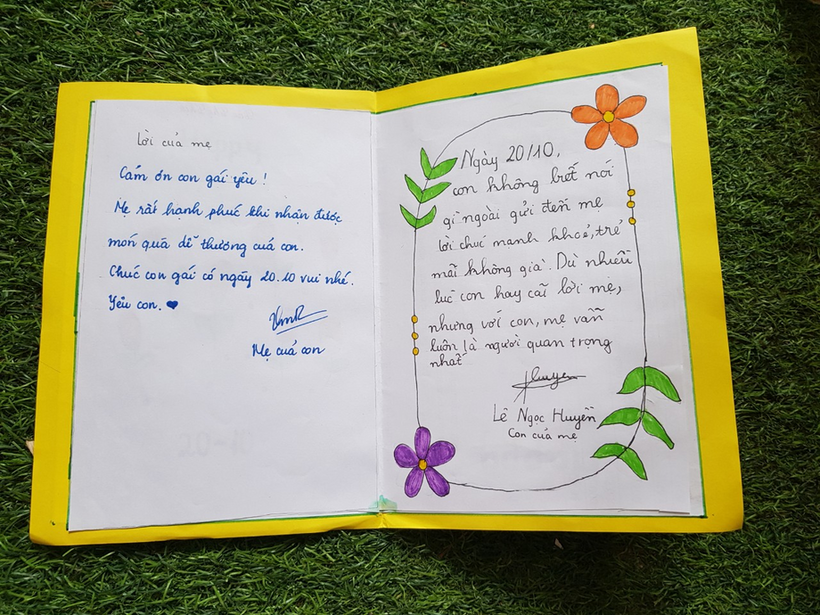 Lời của mẹ
Cảm ơn con gái yêu !
Mẹ rất hạnh phúc khi nhận được
món quà dễ thương của con.
Chúc con gái có ngày 20.10 vui nhé.
Yêu con. ❤
Mẹ của con
Ngày 20/10,
con không biết nói
gì ngoài gửi đến mẹ
lời chúc mạnh khoẻ, trẻ
mãi không già. Dù nhiều
lúc con hay cãi lời mẹ,
nhưng với con, mẹ vẫn
luôn là người quan trọng
nhất
Huyen
Lê Ngọc Huyền
Con của mẹ